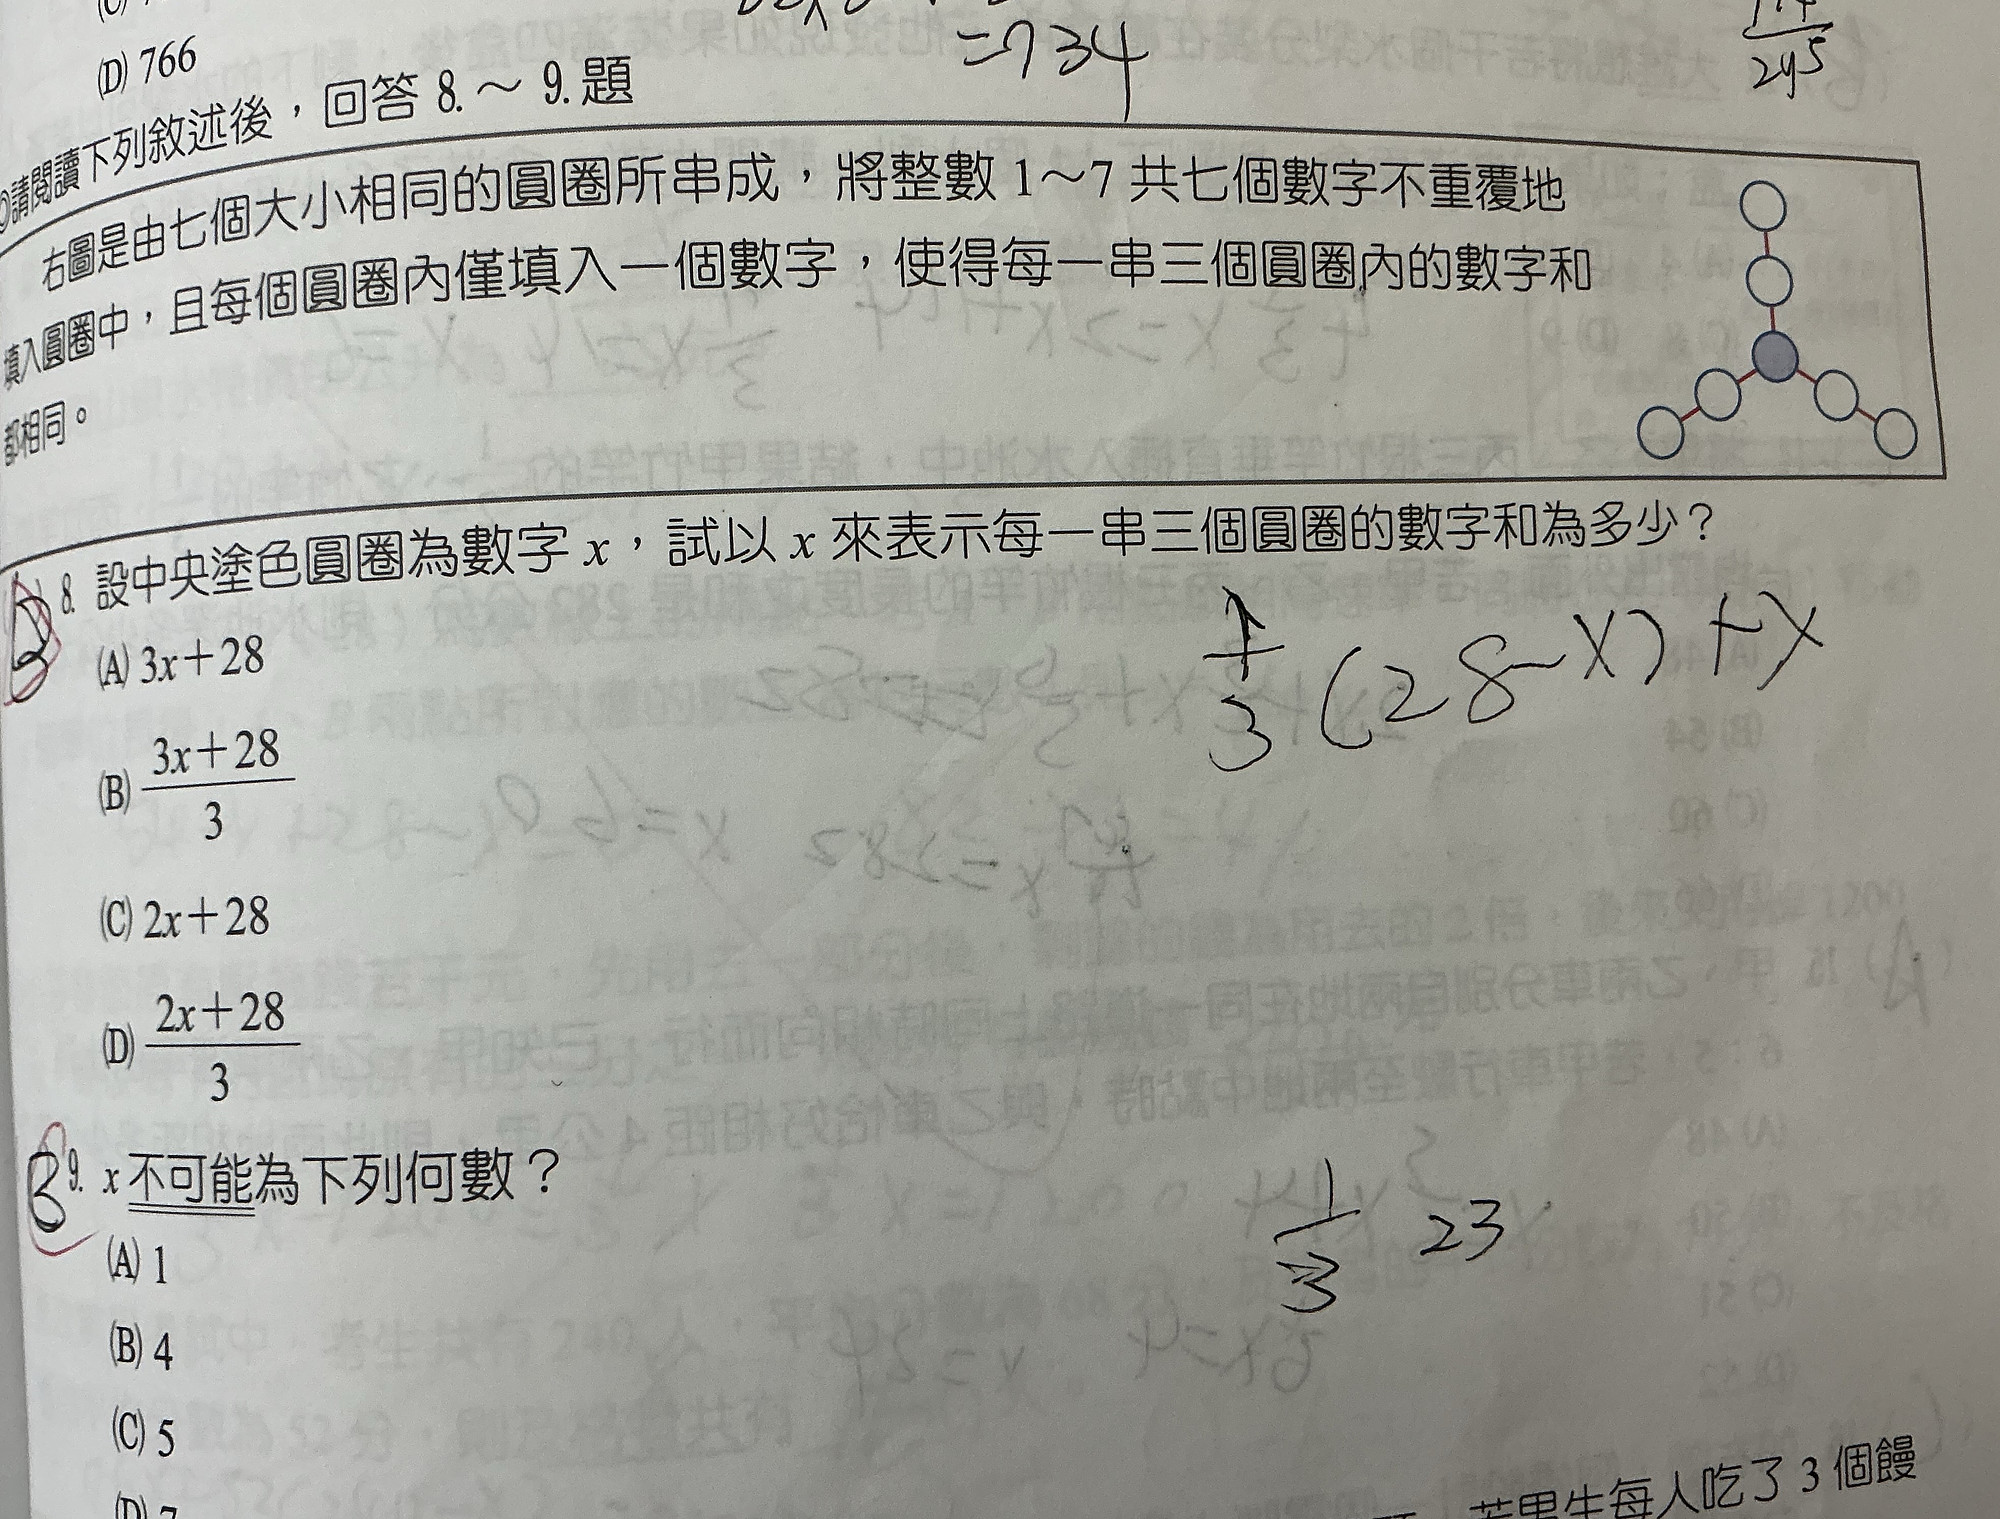 (D) 766
=734
245
◎請閱讀下列敘述後，回答 8.～ 9. 題
右圖是由七個大小相同的圓圈所串成，將整數 1～7 共七個數字不重覆地
填入圓圈中，且每個圓圈內僅填入一個數字，使得每一串三個圓圈內的數字和
都相同。
D 8. 設中央塗色圓圈為數字 x，試以 x 來表示每一串三個圓圈的數字和為多少？
(A) 3x＋28
1/3 (28-x)+x
(B) 3x＋28/3
(C) 2x＋28
(D) 2x＋28/3
B 9. x 不可能為下列何數？
(A) 1
1/3 23
(B) 4
(C) 5
(D) 7
若男生每人吃了 3 個饅